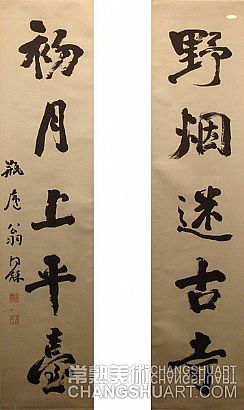 野烟迷古寺
初月上平臺
瓶廬翁同龢
常熟美術 CHANGSHUART
CHANGSHUART.COM